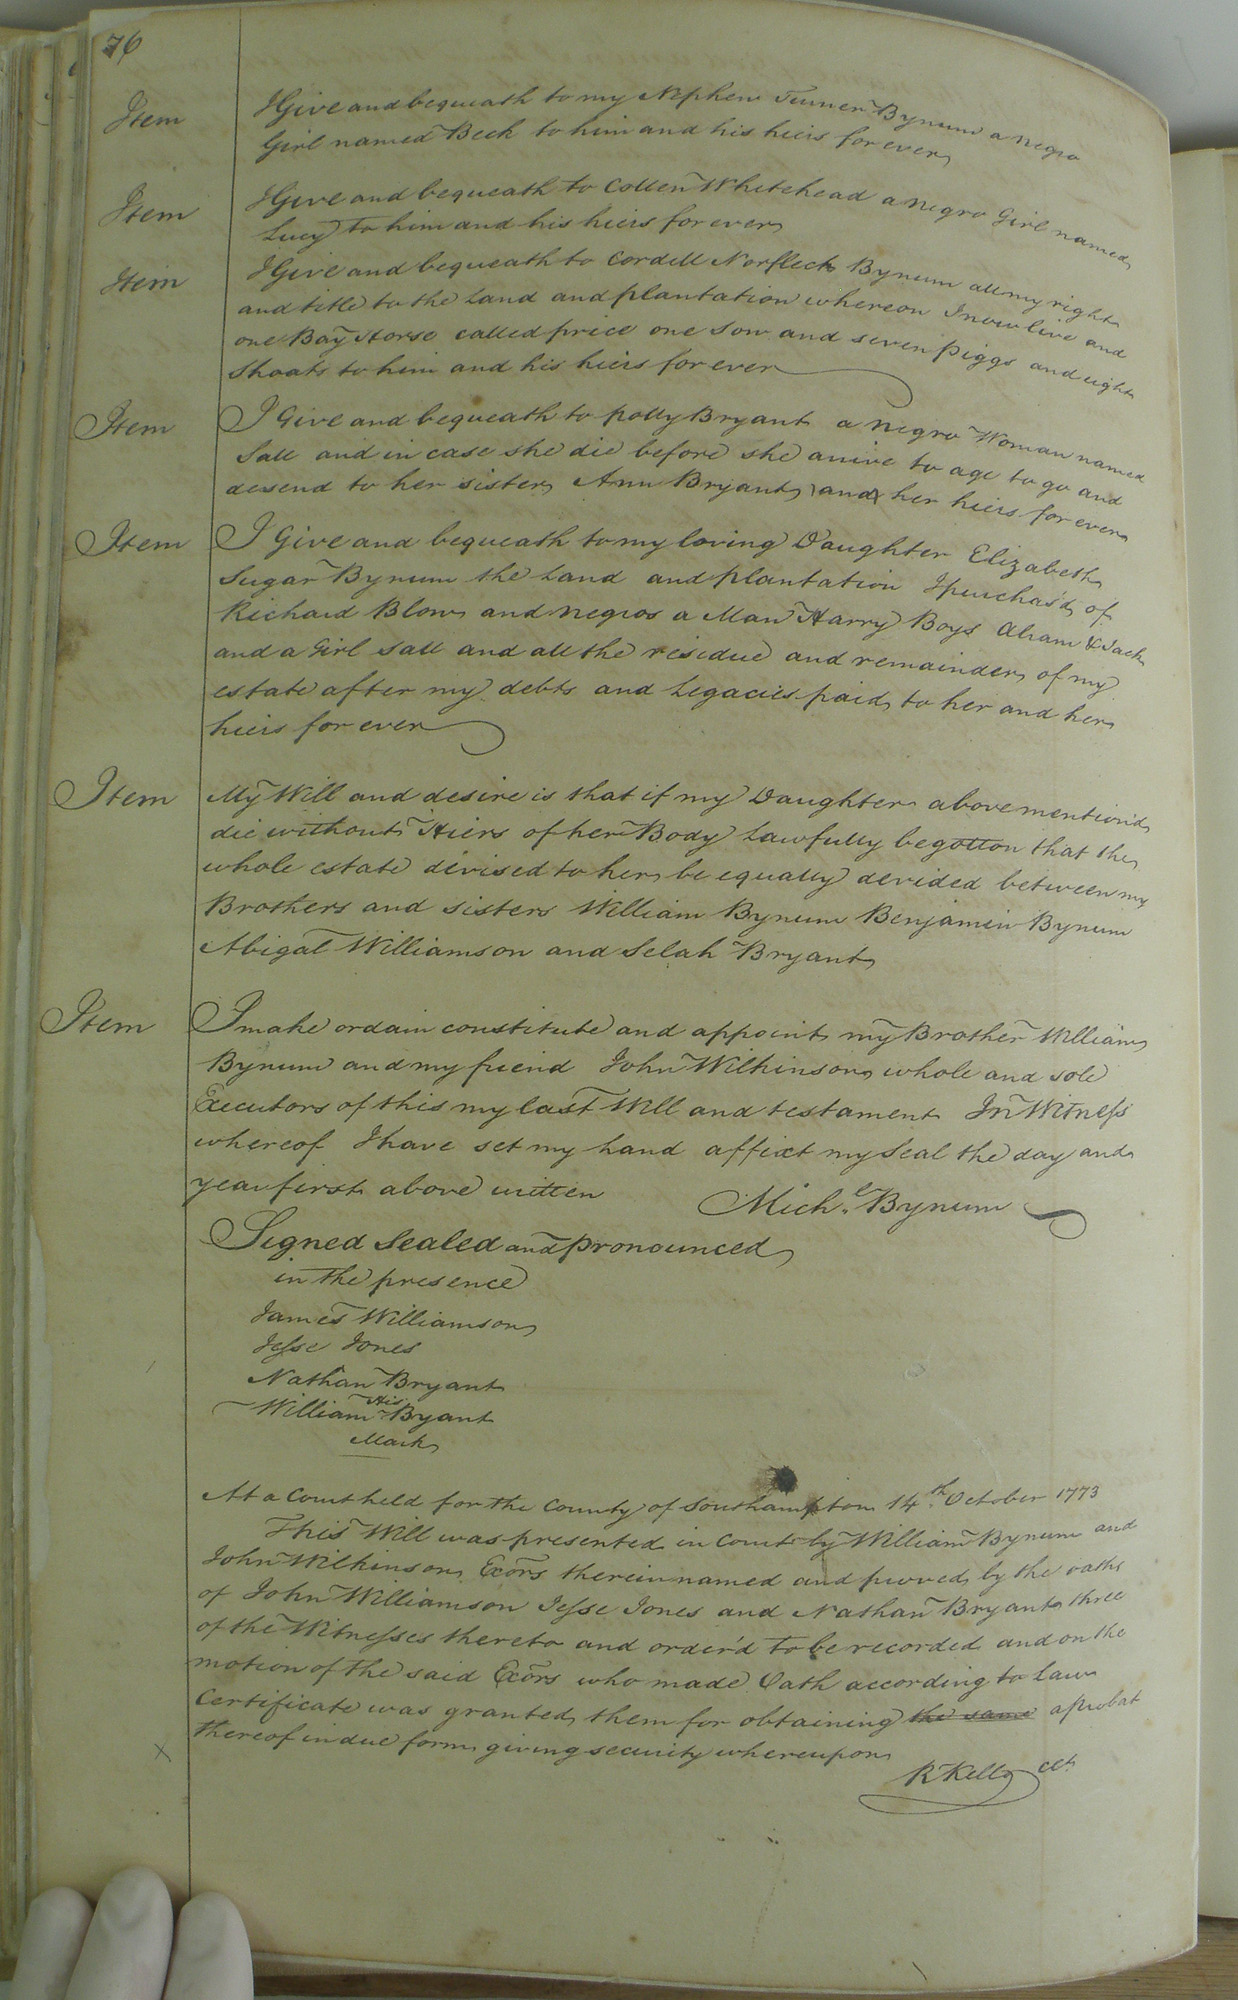 76
Item I Give and bequeath to my Nephew Turner Bynum a negro
Girl named Beck to him and his heirs for ever
Item I Give and bequeath to Collen Whitehead a negro Girl named
Lucy to him and his heirs for ever
Item I Give and bequeath to Cordell Norfleck Bynum all my right
and title to the Land and plantation whereon I now live and
one Bay Horse called price one Sow and seven Piggs and eight
Shoats to him and his heirs for ever
Item I Give and bequeath to polly Bryant a negro Woman named
Sall and in case she die before she arrive to age to go and
desend to her sister Ann Bryant and her heirs for ever
Item I Give and bequeath to my loving Daughter Elizabeth
Sugar Bynum the Land and plantation I purchas'd of
Richard Blow and negros a Man Harry Boys Abram & Jack
and a Girl Sall and all the residue and remainder of my
estate after my debts and Legacies paid to her and her
heirs for ever
Item My Will and desire is that if my Daughter above mention'd
die without Heirs of her Body Lawfully begotton that the
whole estate devised to her be equally devided between my
Brothers and sisters William Bynum Benjamin Bynum
Abigal Williamson and Selah Bryant
Item I make ordain constitute and appoint my Brother William
Bynum and my friend John Wilkinson whole and sole
Executors of this my last Will and testament In Witness
whereof I have set my hand affixt my Seal the day and
year first above written Mich.l Bynum
Signed Sealed and pronounced
in the presence
James Williamson
Jesse Jones
Nathan Bryant
His
William Byant
Mark
At a Court held for the County of Southampton 14.th October 1773
This Will was presented in Court by William Bynum and
John Wilkinson Exors therein named and proved by the oaths
of John Williamson Jesse Jones and Nathan Bryant three
of the Witnesses thereto and order'd to be recorded and on the
motion of the said Exors who made Oath according to Law
Certificate was granted them for obtaining the same aprobat
thereof in due form giving security whereupon
R Kello Clt